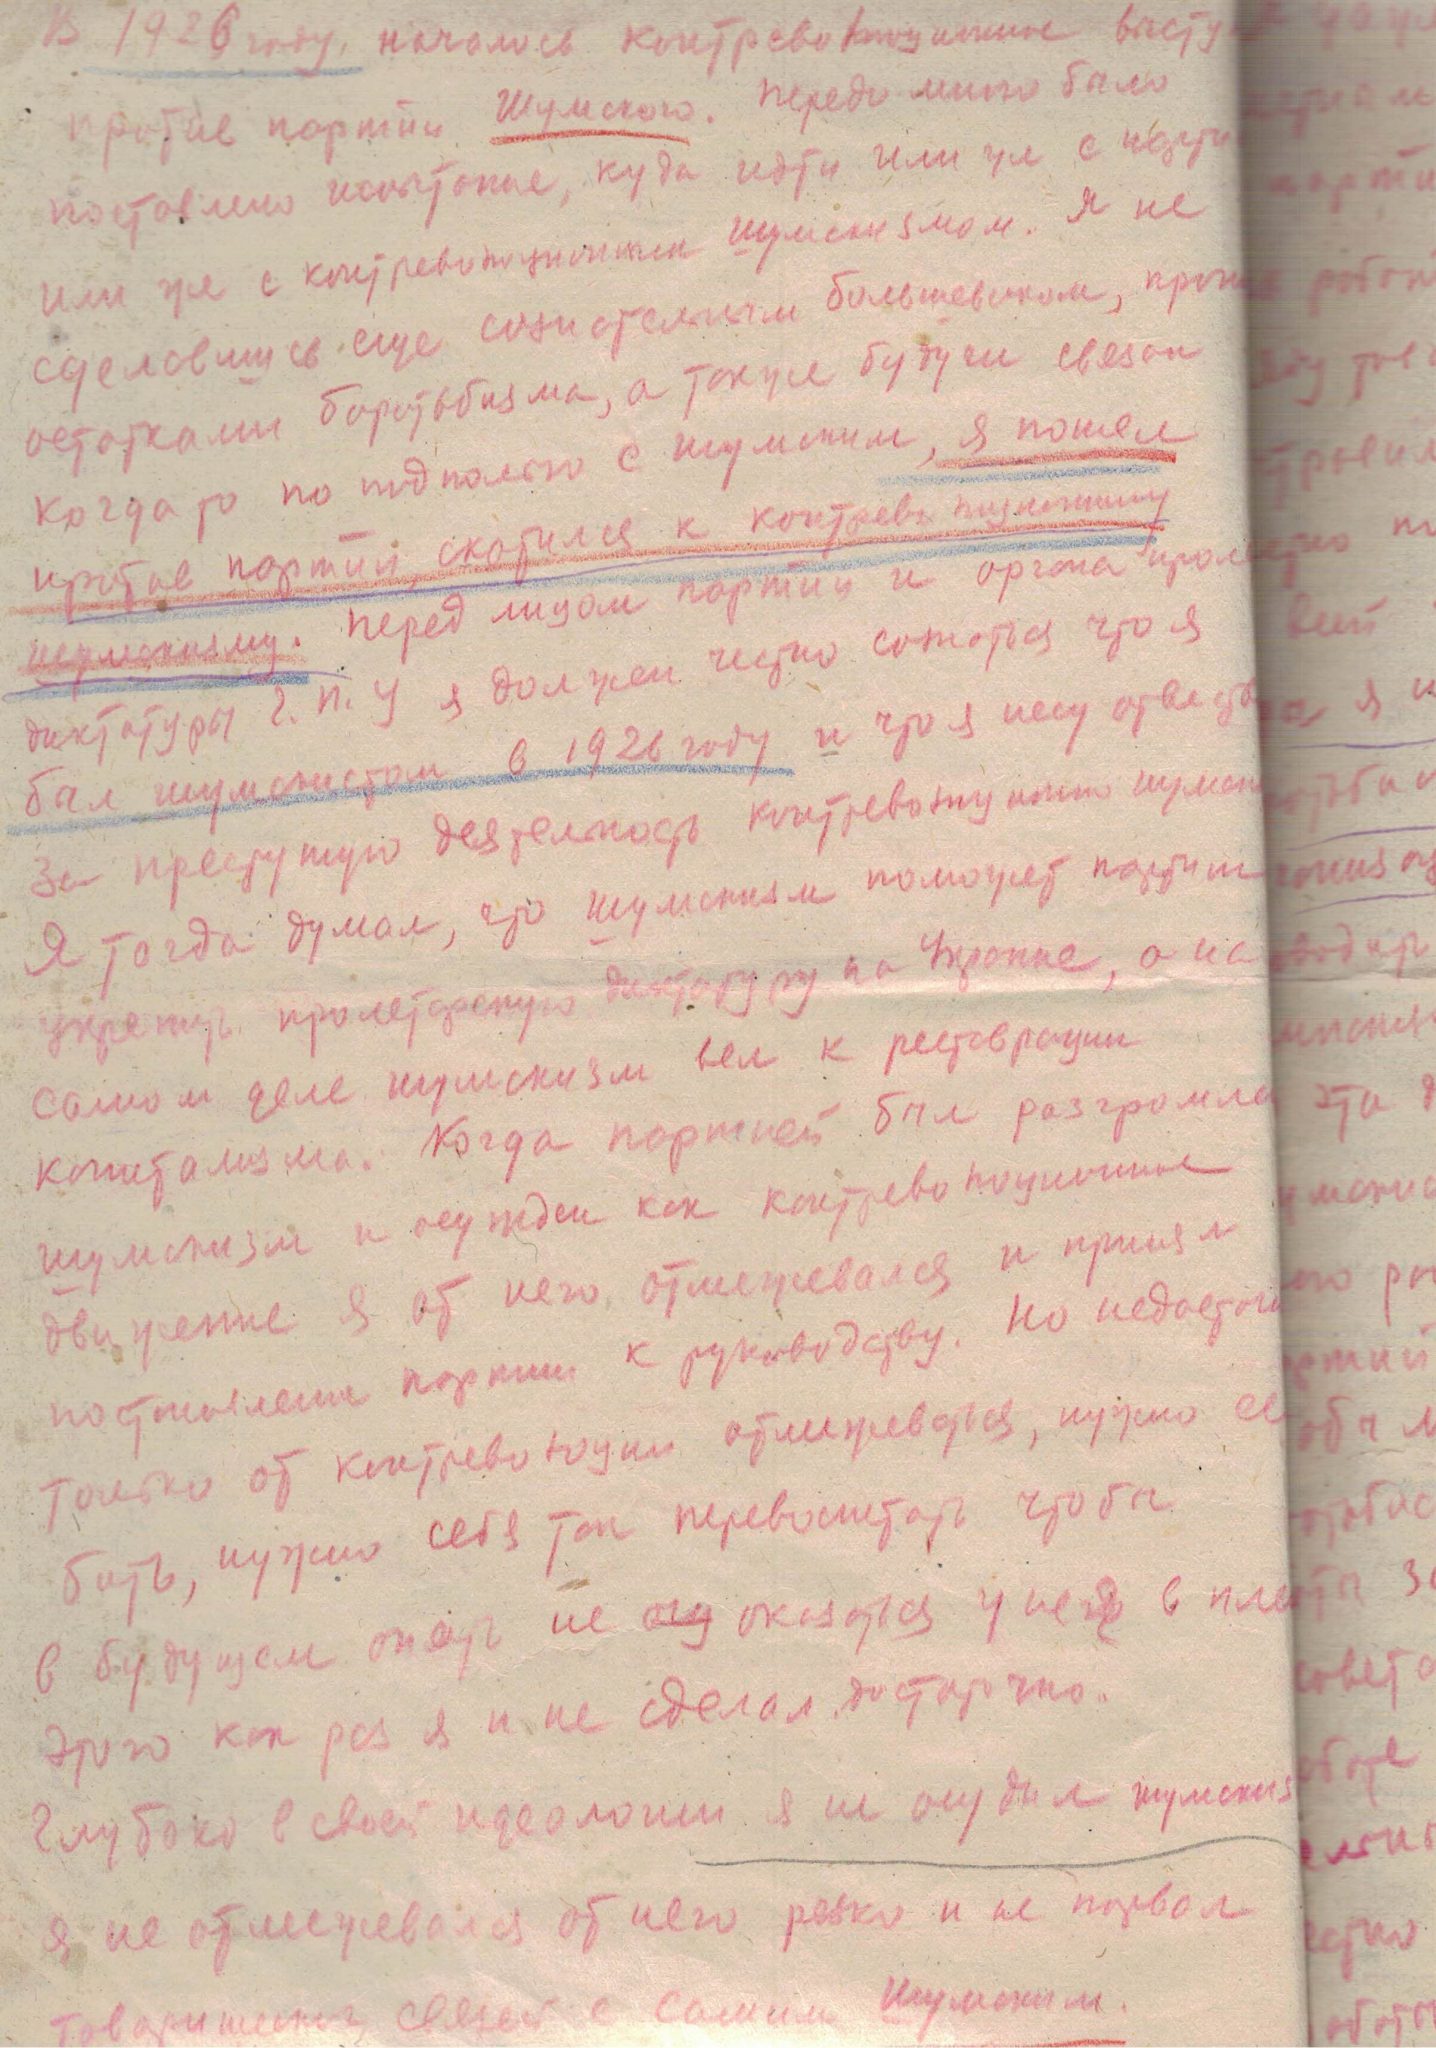 В 1926 году, началось контреволюционное высту
против партии Шумского. Передо мною было
поставлено испытание, куда идти или же с парти
или же с контреволюционым шумскизмом. Я не
сделавшись еще сознательным большевиком, пропи
остатками боротьбизма, а также будучи связан
когда то по подполью с шумским, я пошел
против партии, скотился к контреволюционному
шумскизму. Перед лицом партии и органа прол
диктатуры Г.П.У я должен честно сознаться что я
был шумскистом в 1926 году и что я несу ответств
за преступную деятельность контреволюционно шумск
Я тогда думал, что шумскизм поможет партии
укрепить пролетарскую диктатуру на Украине, а на
самом деле шумскизм вел к реставрации
капитализма. Когда партией был разгромле
шумскизм и осужден как контреволюционное
движение я от него отмежевался и принял
постановление партии к руководству. Но недостато
только от контреволюции отмежеваться, нужно ее
бить, нужно себя так перевоспитать чтобы
в будущем опять не оказаться у нее в пле
Этого как раз я и не сделал достаточно.
Глубоко в своей идеологии я не осудил шумскиз
я не отмежевался от него резко и не порвал
товарищеских связей с самим Шумским.